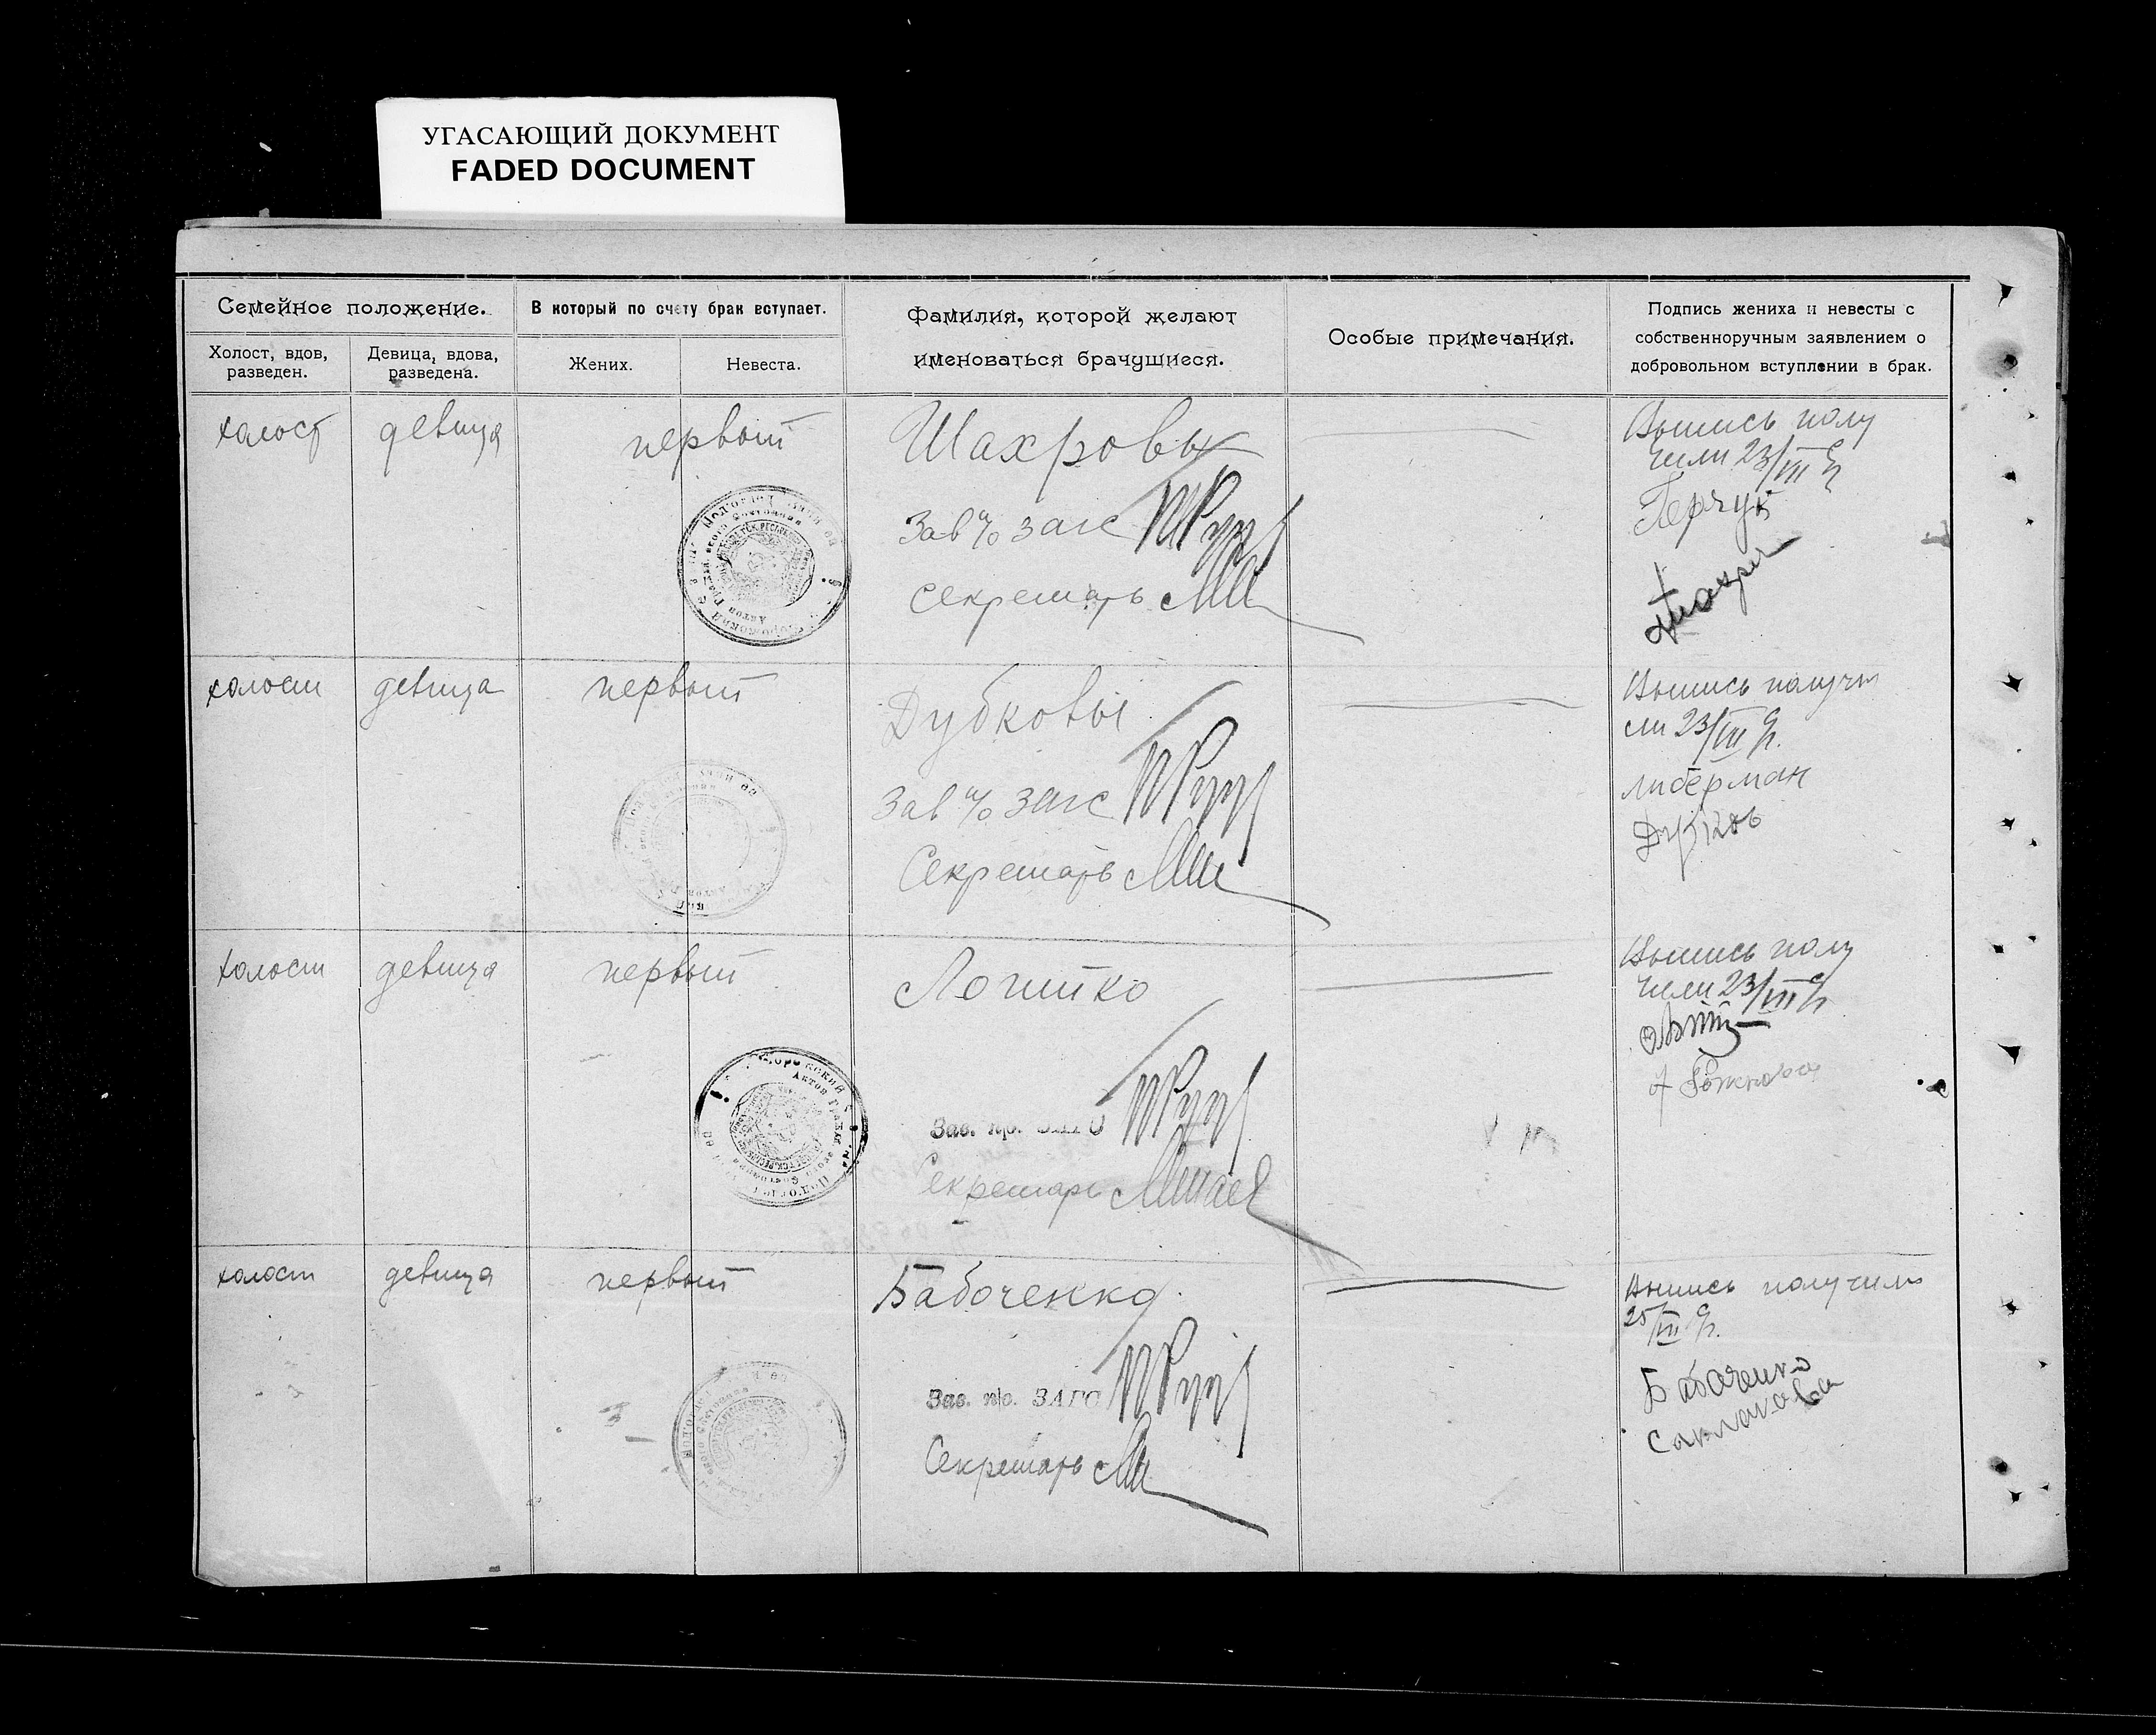 УГАСАЮЩИЙ ДОКУМЕНТ
FADED DOCUMENT
Семейное положение.
Холост, вдов,
разведен.
Девица, вдова,
разведена.
В который по счету брак вступает.
Жених.
Невеста.
Фамилия, которой желают
именоваться брачущиеся.
Особые примечания.
Подпись жениха и невесты с
собственноручным заявлением о
добровольном вступлении в брак.
холост
девица
первый
Шахровы
Зав п/о загс
секретарь
Выпись полу
чили 23/III
Герчук
холост
девица
первый
Дубковы
Зав п/о загс
Секретарь
Выпись получи
ли 23/III
Либерман
Дубков
холост
девица
первый
Зав. п/о. ЗАГС
Секретарь
Выпись полу
чили 23/III
холост
девица
первый
Бабоченко
Зав. п/о. ЗАГС
Секретарь
Выпись получили
25/III
Бабоченко